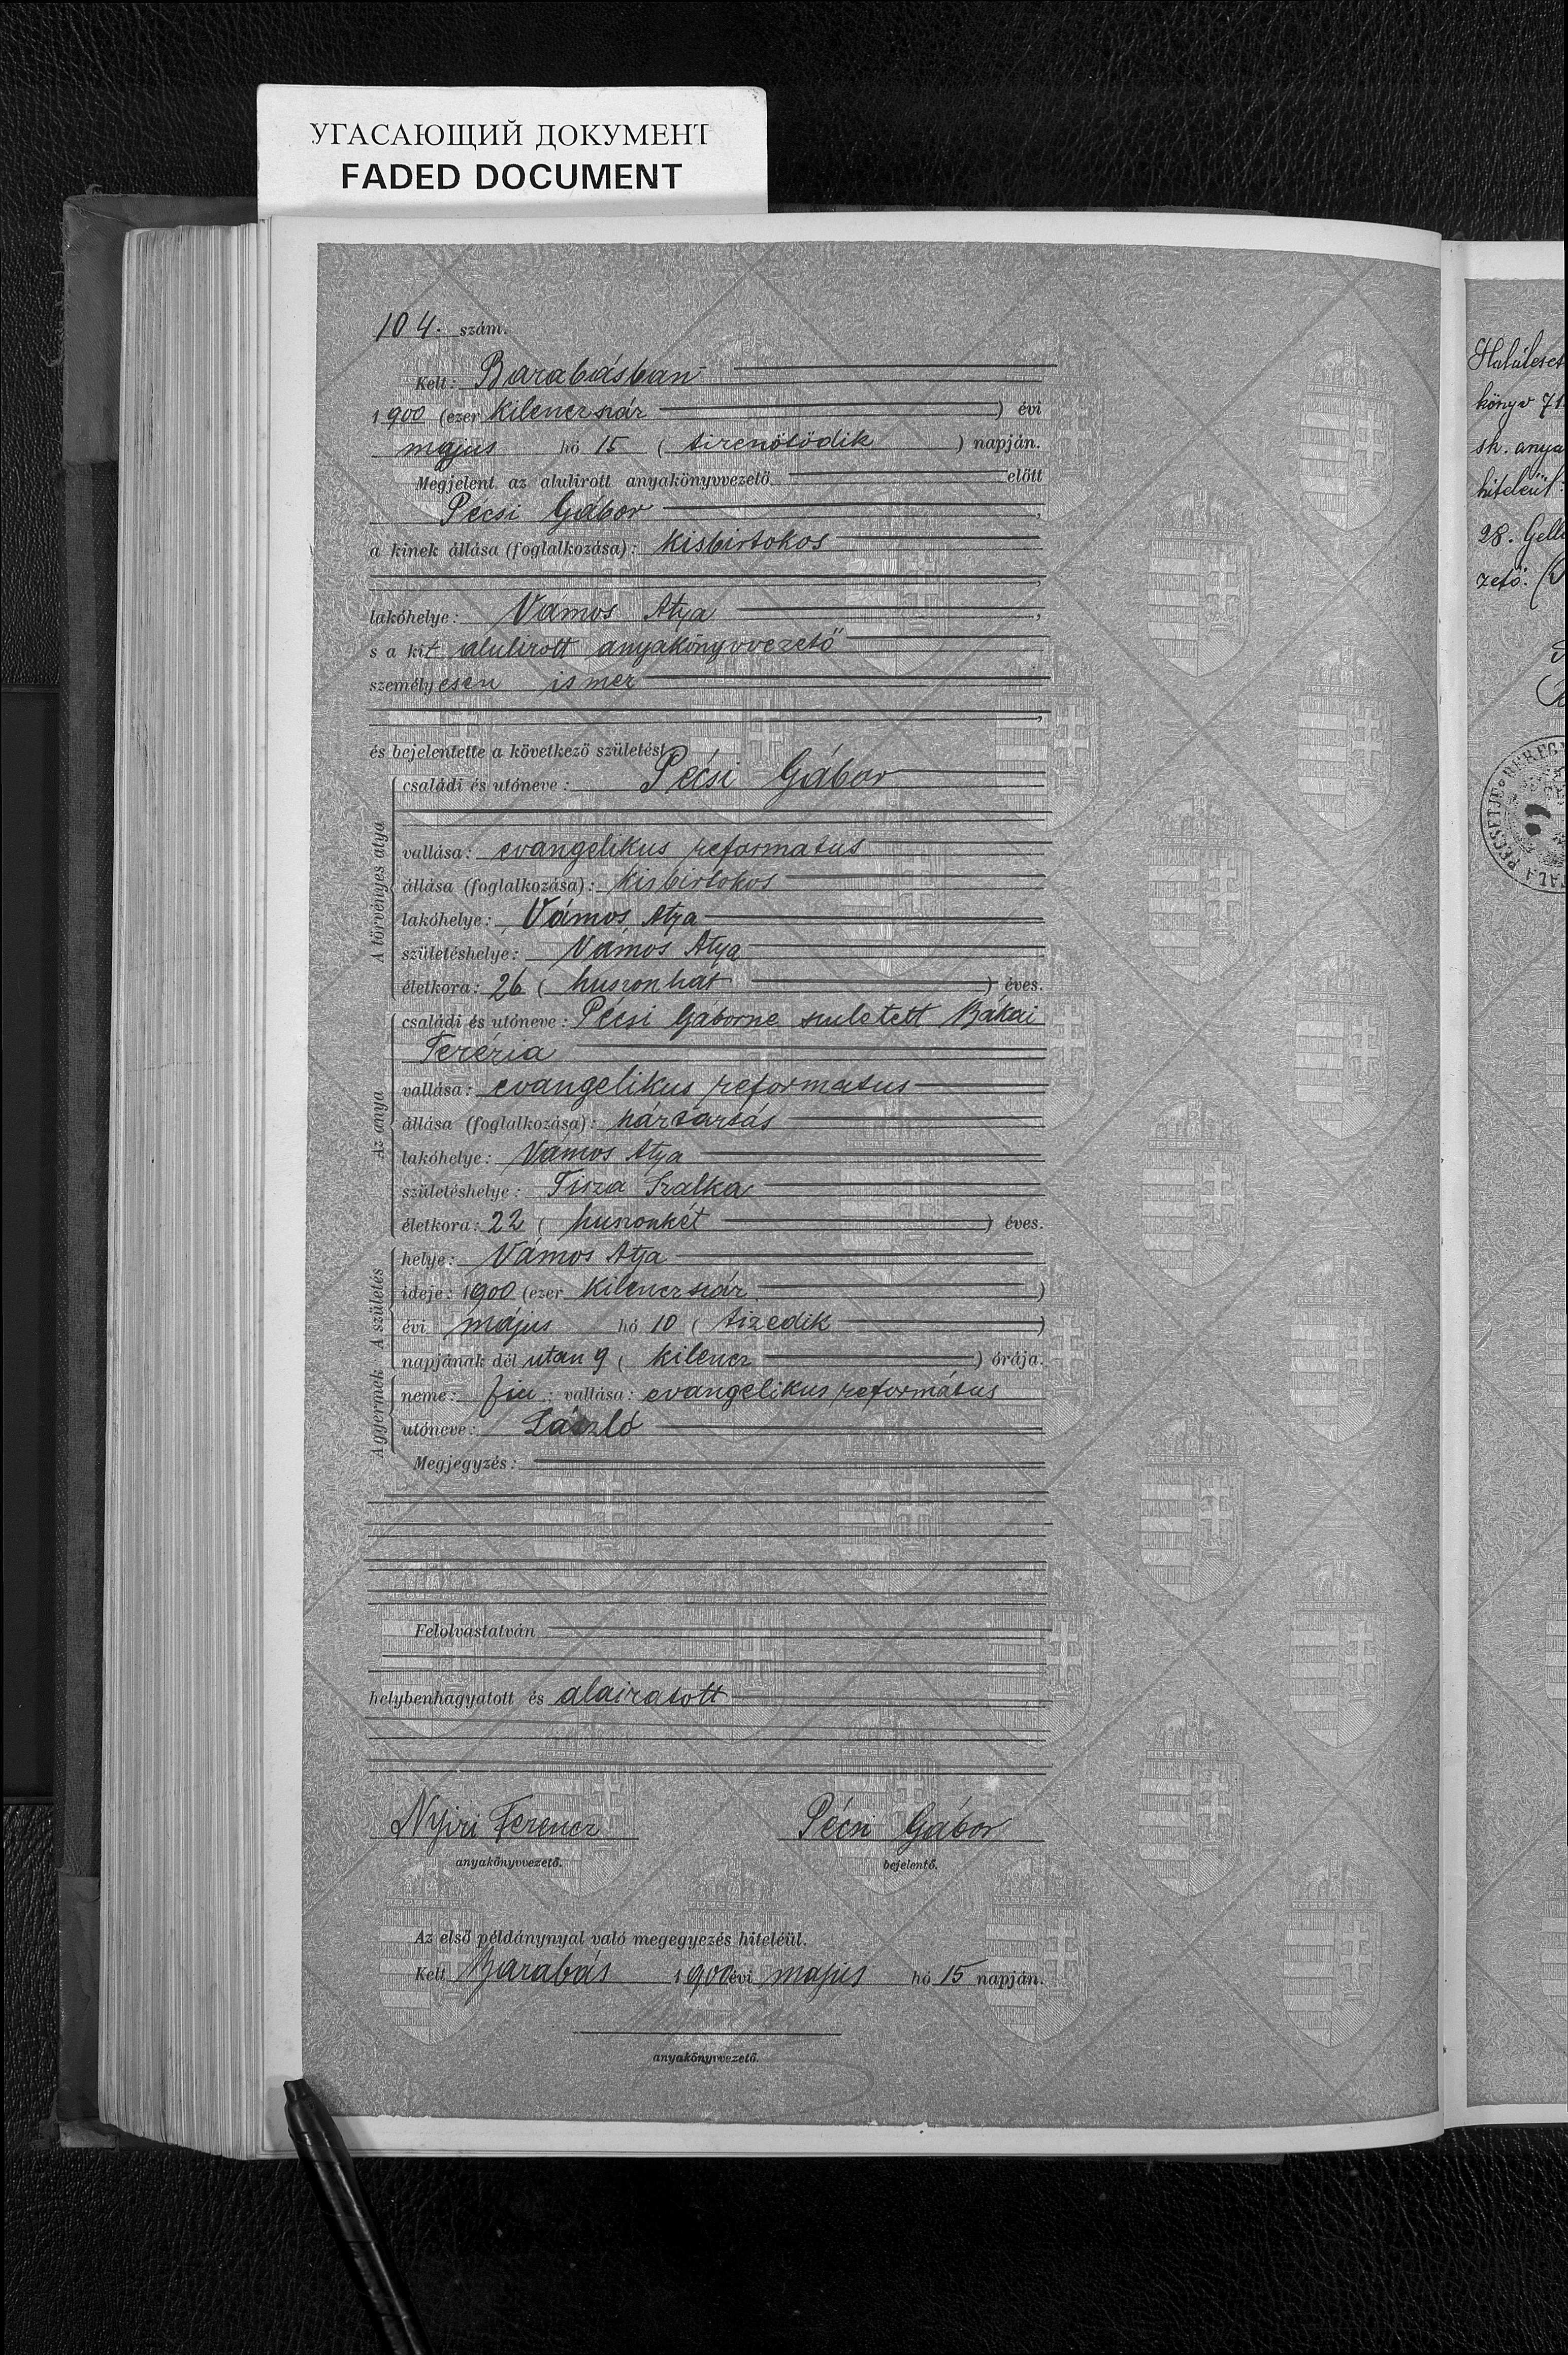 УГАСАЮЩИЙ ДОКУМЕНТ
FADED DOCUMENT
104. szám.
Kelt: Barabásban
1900 (ezer kilenczszár) évi
május hó 15 (tizenötödik) napján.
Megjelent az alulirott anyakönyvvezető előtt
Pécsi Gábor,
a kinek állása (foglalkozása): kisbirtokos
lakóhelye: Vámos Atya,
s a kit alulirott anyakönyvvezető
személyesen ismer
és bejelentette a következő születést:
A törvényes atya
családi és utóneve: Pécsi Gábor
vallása: evangelikus reformatus
állása (foglalkozása): kisbirtokos
lakóhelye: Vámos Atya
születéshelye: Vámos Atya
életkora: 26 (huszonhat) éves.
Az anya
családi és utóneve: Pécsi Gáborne szuletett Bákai
Terézia
vallása: evangelikus reformatus
állása (foglalkozása): háztartás
lakóhelye: Vámos Atya
születéshelye: Tisza Szalka
életkora: 22 (huszonkét) éves.
A születés
helye: Vámos Atya
ideje: 1900 (ezer kilenczszár)
évi május hó 10 (tizedik)
napjának dél utan 9 (kilencz) órája.
A gyermek
neme: fiu; vallása: evangelikus református
utóneve: László
Megjegyzés:
Felolvastatván
helybenhagyatott és alairatott
Nyiri Ferencz Pécsi Gábor
anyakönyvvezető. bejelentő.
Az első példánynyal való megegyezés hiteléül.
Kelt Barabás 1900 évi május hó 15 napján.
anyakönyvvezető.
Haláleset
könyv 71
sk. anya
hiteleül:
28. Gell
zető: (
PECSÉTJE BEREG